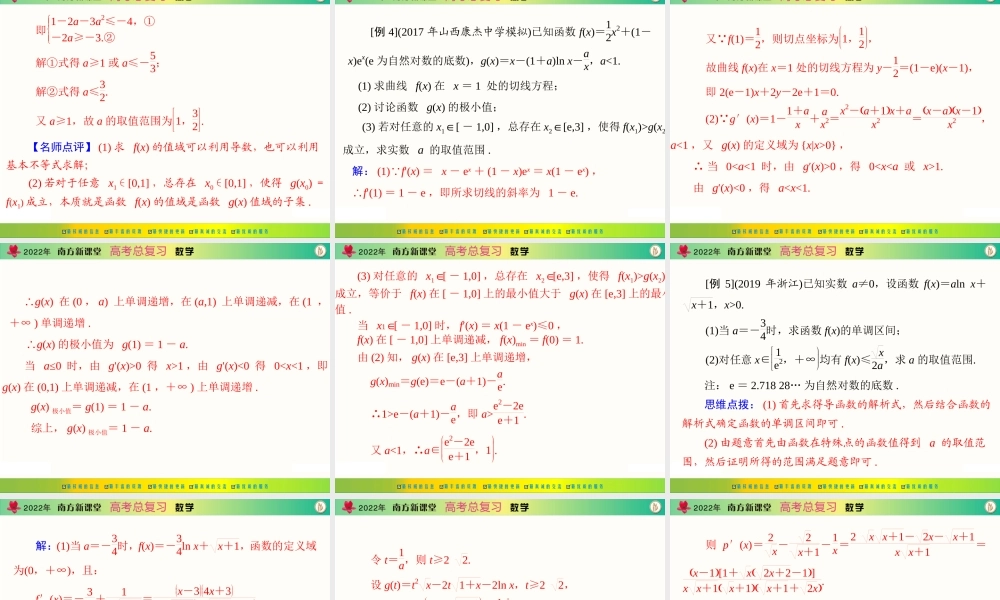 即 1－2a－3a²≤－4，①
－2a≥－3.②
解①式得 a≥1 或 a≤－5/3；
解②式得 a≤3/2.
又 a≥1，故 a 的取值范围为[1，3/2].
【名师点评】(1) 求 f(x) 的值域可以利用导数，也可以利用
基本不等式求解；
(2) 若对于任意 x₁∈[0,1]，总存在 x₀∈[0,1]，使得 g(x₀) =
f(x₁) 成立，本质就是函数 f(x) 的值域是函数 g(x) 值域的子集．
[例 4](2017 年山西康杰中学模拟)已知函数 f(x)=1/2x²＋(1－
x)eˣ(e 为自然对数的底数)，g(x)=x－(1＋a)ln x－a/x，a<1.
(1) 求曲线 f(x) 在 x = 1 处的切线方程；
(2) 讨论函数 g(x) 的极小值；
(3) 若对任意的 x₁∈[－1,0]，总存在 x₂∈[e,3]，使得 f(x₁)>g(x₂
成立，求实数 a 的取值范围．
解：(1)∵f′(x) = x－eˣ + (1－x)eˣ = x(1－eˣ)，
∴f′(1) = 1－e，即所求切线的斜率为 1－e.
又∵f(1)=1/2，则切点坐标为(1，1/2)，
故曲线 f(x)在 x＝1 处的切线方程为 y－1/2=(1－e)(x－1)，
即 2(e－1)x＋2y－2e＋1=0.
(2)∵g′(x)＝1－(1＋a)/x＋a/x²=(x²－(a＋1)x＋a)/x²=(x－a)(x－1)/x²，
a<1，又 g(x) 的定义域为{x|x>0}，
∴当 0<a<1 时，由 g′(x)>0，得 0<x<a 或 x>1.
由 g′(x)<0，得 a<x<1.
2022年 南方新课堂 高考总复习 数学
∴g(x) 在 (0，a) 上单调递增，在 (a,1) 上单调递减，在 (1，
＋∞) 单调递增．
∴g(x) 的极小值为 g(1) = 1－a.
当 a≤0 时，由 g′(x)>0 得 x>1，由 g′(x)<0 得 0<x<1，即
g(x) 在 (0,1) 上单调递减，在 (1，＋∞) 上单调递增．
g(x) 极小值 = g(1) = 1－a.
综上，g(x) 极小值 = 1－a.
2022年 南方新课堂 高考总复习 数学
(3) 对任意的 x₁∈[－1,0]，总存在 x₂∈[e,3]，使得 f(x₁)>g(x₂)
成立，等价于 f(x) 在 [－1,0] 上的最小值大于 g(x) 在 [e,3] 上的最小
值．
当 x₁∈[－1,0] 时，f′(x) = x(1－eˣ)≤0，
f(x) 在 [－1,0] 上单调递减，f(x)min = f(0) = 1.
由 (2) 知，g(x) 在 [e,3] 上单调递增，
g(x)min＝g(e)＝e－(a＋1)－a/e.
∴1>e－(a＋1)－a/e，即 a>(e²－2e)/(e＋1).
又 a<1，∴a∈((e²－2e)/(e＋1)，1).
2022年 南方新课堂 高考总复习 数学
[例 5](2019 年浙江)已知实数 a≠0，设函数 f(x)=aln x＋
√x＋1，x>0.
(1)当 a＝－3/4时，求函数 f(x)的单调区间；
(2)对任意 x∈[1/e²，＋∞)均有 f(x)≤√x/2a，求 a 的取值范围.
注：e = 2.718 28… 为自然对数的底数．
思维点拨：(1) 首先求得导函数的解析式，然后结合函数的
解析式确定函数的单调区间即可．
(2) 由题意首先由函数在特殊点的函数值得到 a 的取值范
围，然后证明所得的范围满足题意即可．
2022年 南方新课堂 高考总复习 数学
解：(1)当 a＝－3/4时，f(x)=－3/4ln x＋√x＋1，函数的定义域
为(0，＋∞)，且：
2022年 南方新课堂 高考总复习 数学
令 t＝1/a，则 t≥2√2.
设 g(t)＝t²√x－2t√1＋x－2ln x，t≥2√2，
2022年 南方新课堂 高考总复习 数学
则 p′(x)＝2/√x－√2/√x＋1－1/x＝(2√x√x＋1－√2x－√x＋1)/(x√x＋1)＝
(x－1)[1＋√x(√2x＋2－1)]
x√x＋1(√x＋1)(√x＋1＋√2x)